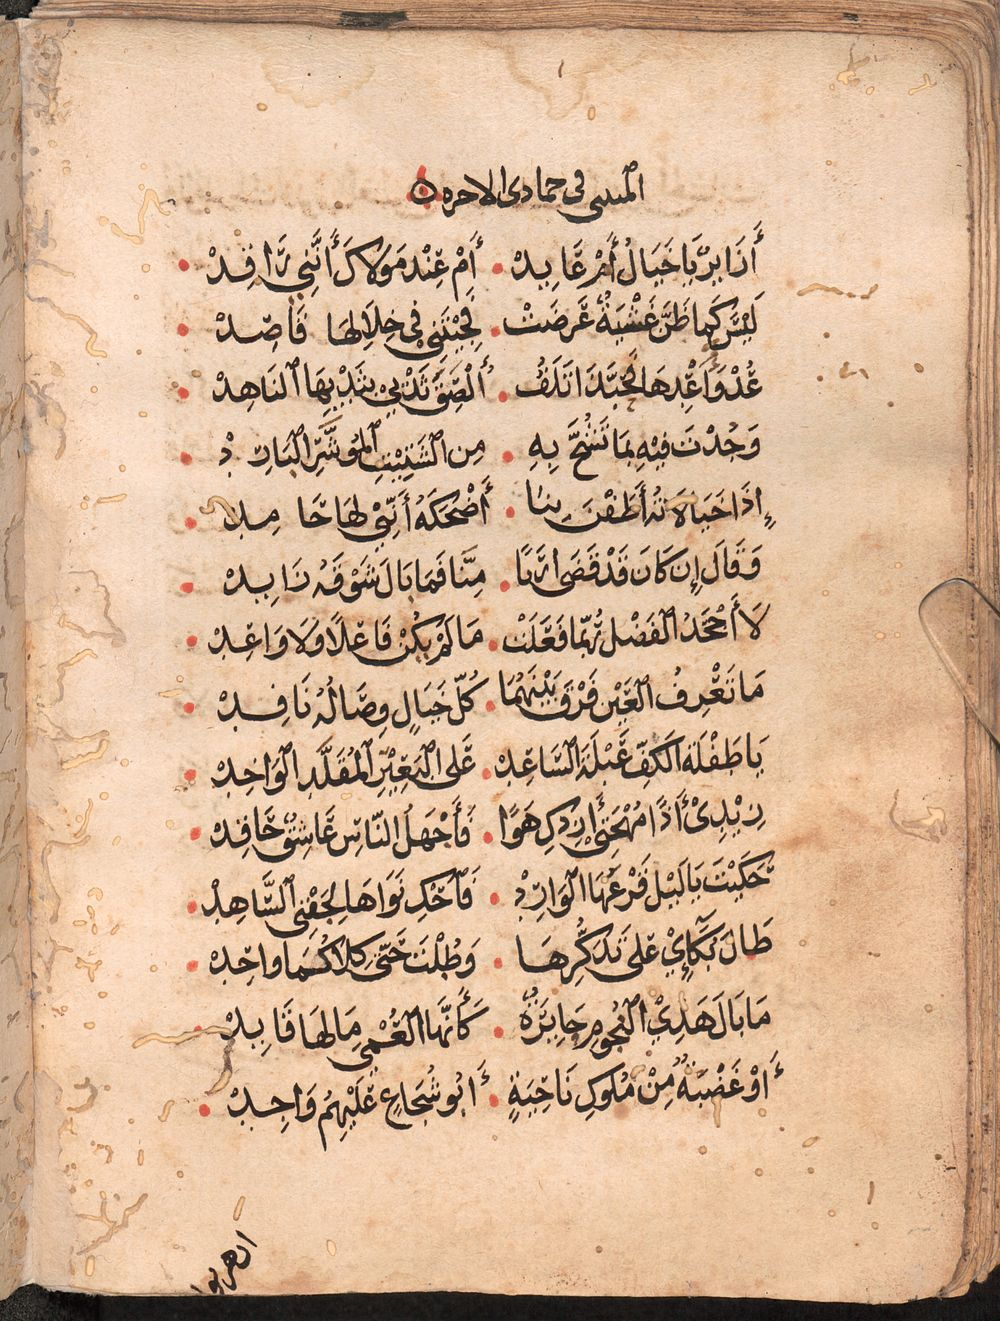 المتنبي في جمادى الاخره
أَزَايِرٌ يَا خَيَالُ أَمْ عَايِدْ • أَمْ عِنْدَ مَوْلاكَ أَنَّنِي رَاقِدْ •
لَيْسَ كَما ظَنَّ غَشْيَةٌ عَرَضَتْ • فَجِئْتَنِي فِي خِلَالِهَا قَاصِدْ •
عُدْ وَأَعِدْهَا فَحَبَّذَا تَلَفٌ • أَلْصَقَ ثَدْيِيْ بِثَدْيِهَا النَاهِدْ •
وَجُدْتَ فِيْهِ بِمَا تَشُحُّ بِهِ • مِنَ الشَّتِيْتِ المُوَشَّرِ البَارِدْ •
إِذَا خَيَالاَتُهُ أَطَفْنَ بِنَا • أَضْحَكَهُ أَنَّنِيْ لَهَا حَامِدْ •
وَقَالَ إِن كَانَ قَدْ قَضَى أَرَبًا • مِنَّا فَمَا بَالُ شَوْقِهِ زَايِدْ •
لَا أَجْحَدُ الفَضْلَ رُبَّمَا فَعَلَتْ • مَا لَمْ يَكُنْ فَاعِلًا وَلَا وَاعِدْ •
مَا تَعْرِفُ العَيْنُ فَرْقَ بَيْنَهُمَا • كُلٌّ خَيَالٍ وِصَالُهُ نَافِدْ •
يَا طَفْلَةَ الكَفِّ عَبْلَةَ السَّاعِدِ • عَلَى البَعِيْرِ المُقَلَّدِ الوَاخِدْ •
زِيْدِيْ أَذًا مُهْجَتِي أَزِدْكِ هَوًا • فَأَجْهَلُ النَّاسِ عَاشِقٌ حَاقِدْ •
حَكَيْتَ يَا لَيْلُ فَرْعَهَا الوَارِدْ • فَاَحْكِ نَوَاهَا لِجَفْنِي السَّاهِدْ •
طَالَ بُكَآئِيْ عَلَى تَذَكُّرِهَا • وَطُلْتَ حَتَّى كِلَاكُمَا وَاحِدْ •
مَا بَالُ هَذِيْ النُجُومِ حَايِرَةً • كَأَنَّهَا العُمْيُ مَا لَهَا قَايِدْ
أَوْ عُصْبَةٌ مِنْ مُلُوكِ نَاحِيَةٍ • أَبُو شُجَاعٍ عَلَيْهِمُ وَاجِدْ •